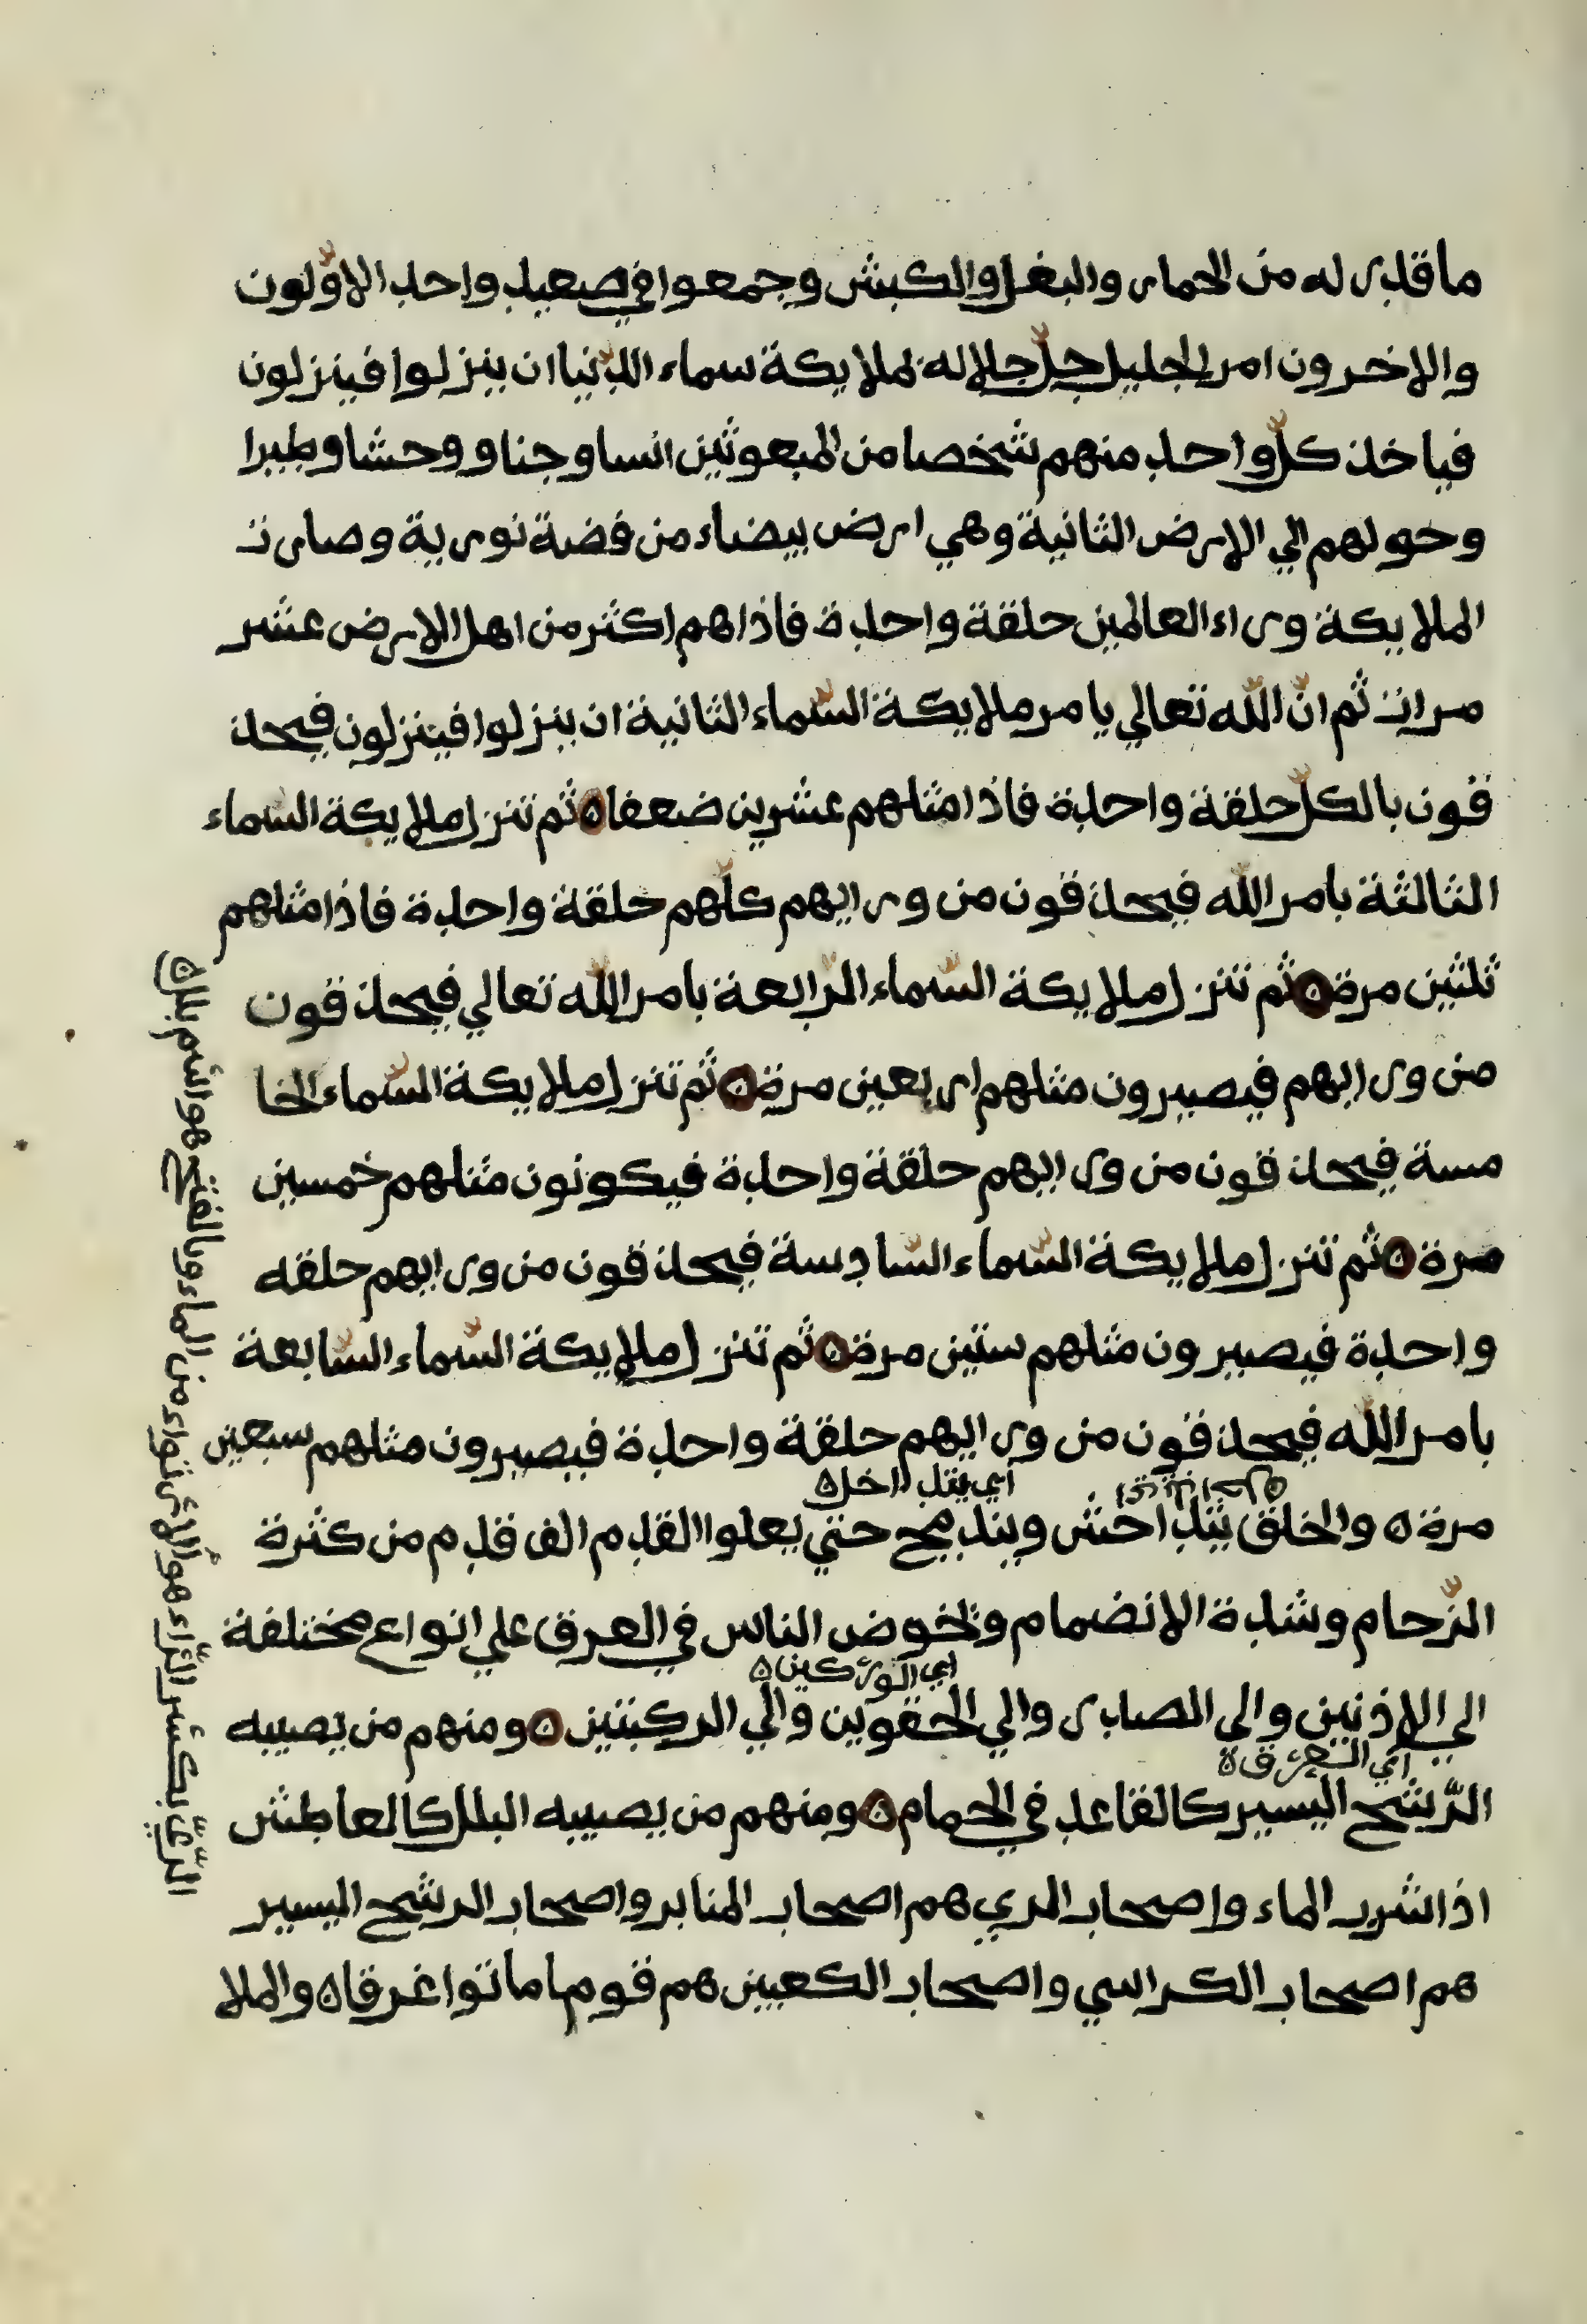 ما قدر له من الحمار والبغل والكبش وجمعوا في صعيد واحد الاوّلون
والاخرون امر الجليل جلّ جلاله لملايكة سماء الدّنيا ان ينزلوا فينزلون
فياخذ كلّ واحد منهم شخصا من المبعوثين انسا وجنا ووحشا وطيرا
وحولهم الي الارض الثانية وهي ارض بيضاء من فضة نورية وصارت
الملايكة وراء العالمين حلقة واحدة فاذا هم اكثر من اهل الارض عشر
مرات ثم انّ اللّه تعالي يامر ملايكة السّماء الثانية ان ينزلوا فينزلون فيحذ
قون بالكلّ حلقة واحدة فاذا مثلهم عشرين ضعفا ۵ ثم تنزل ملايكة السماء
الثالثة بامر اللّه فيحذقون من ورايهم كلّهم حلقة واحدة فاذا مثلهم
ثلثين مرة ۵ ثم تنزل ملايكة السّماء الرّابعة بامر اللّه تعالي فيحذقون
من ورايهم فيصيرون مثلهم اربعين مرة ۵ ثم تنزل ملايكة السّماء الخا
مسة فيحذقون من ورايهم حلقة واحدة فيكونون مثلهم خمسين
مرة ۵ ثم تنزل ملايكة السّماء السّادسة فيحذقون من ورايهم حلقه
واحدة فيصيرون مثلهم ستين مرة ۵ ثم تنزل ملايكة السّماء السّابعة
بامر اللّه فيحذقون من ورايهم حلقة واحدة فيصيرون مثلهم سبعين
اي يتداخل ۵
مرة ۵ والخلق تتداحش ويندمج حتي يعلوا القدم الف قدم من كثرة
الزّحام وشدة الانضمام وتخوض الناس في العرق علي انواع مختلفة
اي الوركين ۵
الي الاذنين والي الصدر والي الحقوين والي الركبتين ۵ ومنهم من يصيبه
اي العرق ۵
الرّشح اليسير كالقاعد في الحمام ۵ ومنهم من يصيبه البلل كالعاطش
اذا شرب الماء واصحاب الري هم اصحاب المنابر واصحاب الرشح اليسير
هم اصحاب الكراسي واصحاب الكعبين هم قوم ماتوا غرقا ۵ والملا
الرّيّ بكسر الرّاء هو الارتواء من الماء وبالفتح هو اسم بلد ۵